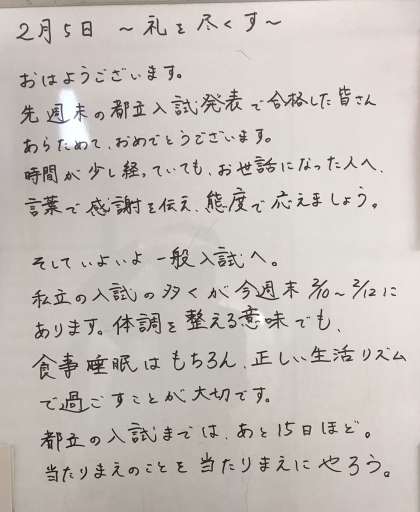 2月5日 ～礼を尽くす～
おはようございます。
先週末の都立入試発表で合格した皆さん
あらためて、おめでとうございます。
時間が少し経っていても、お世話になった人へ、
言葉で感謝を伝え、態度で応えましょう。
そしていよいよ一般入試へ。
私立の入試の多くが今週末2/10～2/12に
あります。体調を整える意味でも、
食事睡眠はもちろん、正しい生活リズム
で過ごすことが大切です。
都立の入試までは、あと15日ほど。
当たりまえのことを当たりまえにやろう。